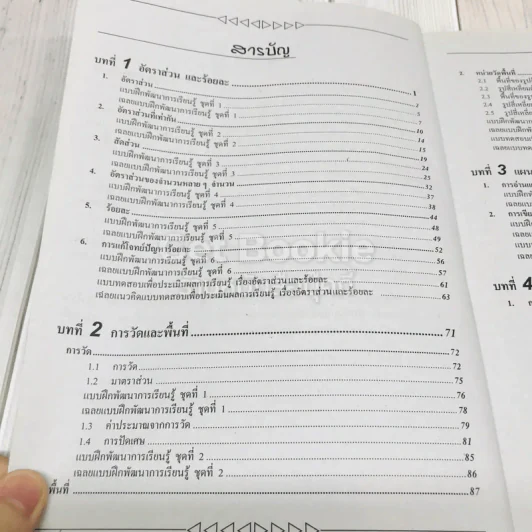 สารบัญ
บทที่ 1 อัตราส่วน และร้อยละ 1
1. อัตราส่วน
แบบฝึกพัฒนาการเรียนรู้ ชุดที่ 1
เฉลยแบบฝึกพัฒนาการเรียนรู้ ชุดที่ 1 7
2. อัตราส่วนที่เท่ากัน 10
แบบฝึกพัฒนาการเรียนรู้ ชุดที่ 2 14
เฉลยแบบฝึกพัฒนาการเรียนรู้ ชุดที่ 2 15
3. สัดส่วน 19
แบบฝึกพัฒนาการเรียนรู้ ชุดที่ 3 24
เฉลยแบบฝึกพัฒนาการเรียนรู้ ชุดที่ 3 25
4. อัตราส่วนของจำนวนหลาย ๆ จำนวน 32
แบบฝึกพัฒนาการเรียนรู้ ชุดที่ 4 37
เฉลยแบบฝึกพัฒนาการเรียนรู้ ชุดที่ 4 38
5. ร้อยละ 44
แบบฝึกพัฒนาการเรียนรู้ ชุดที่ 5 48
เฉลยแบบฝึกพัฒนาการเรียนรู้ ชุดที่ 5 49
6. การแก้โจทย์ปัญหาร้อยละ 52
แบบฝึกพัฒนาการเรียนรู้ ชุดที่ 6 56
เฉลยแบบฝึกพัฒนาการเรียนรู้ ชุดที่ 6 57
แบบทดสอบเพื่อประเมินผลการเรียนรู้ เรื่องอัตราส่วนและร้อยละ 61
เฉลยแนวคิดแบบทดสอบเพื่อประเมินผลการเรียนรู้ เรื่องอัตราส่วนและร้อยละ 63
บทที่ 2 การวัดและพื้นที่ 71
การวัด 72
1.1 การวัด 72
1.2 มาตราส่วน 75
แบบฝึกพัฒนาการเรียนรู้ ชุดที่ 1 76
เฉลยแบบฝึกพัฒนาการเรียนรู้ ชุดที่ 1 78
1.3 ค่าประมาณจากการวัด 79
1.4 การปัดเศษ 81
แบบฝึกพัฒนาการเรียนรู้ ชุดที่ 2 85
เฉลยแบบฝึกพัฒนาการเรียนรู้ ชุดที่ 2 86
พื้นที่ 87
Bookie
2. หน่วยวัดพื้นที่
2.1 พื้นที่ของรูป
2.2 รูปสี่เหลี่ยม
2.3 พื้นที่ของรูป
2.4 รูปสี่เหลี่ยม
2.5 รูปสี่เหลี่ยม
แบบฝึกพัฒนาการ
เฉลยแบบฝึกพัฒนา
แบบทดสอบเพื่อ
เฉลยแบบทดส
บทที่ 3 แผน
1. การอ่านแ
แบบฝึก
เฉลยแ
2. การเขีย
แบบฝึ
เฉลย
แบบ
เฉล
บทที่ 4
1.